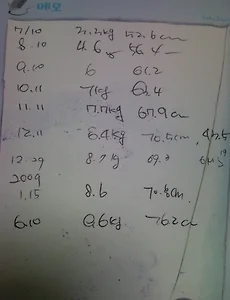 메모
7/10 52.6cm
8.10 4.6 56.4
9.10 6 61.2
10.11 7kg
11.11 7.7kg 67.9cm
12.11 8.4kg 70.5cm
12.29 8.7kg 69.3
2009
1.15 8.6 70.8cm
6.10 9.6kg 76.2cm